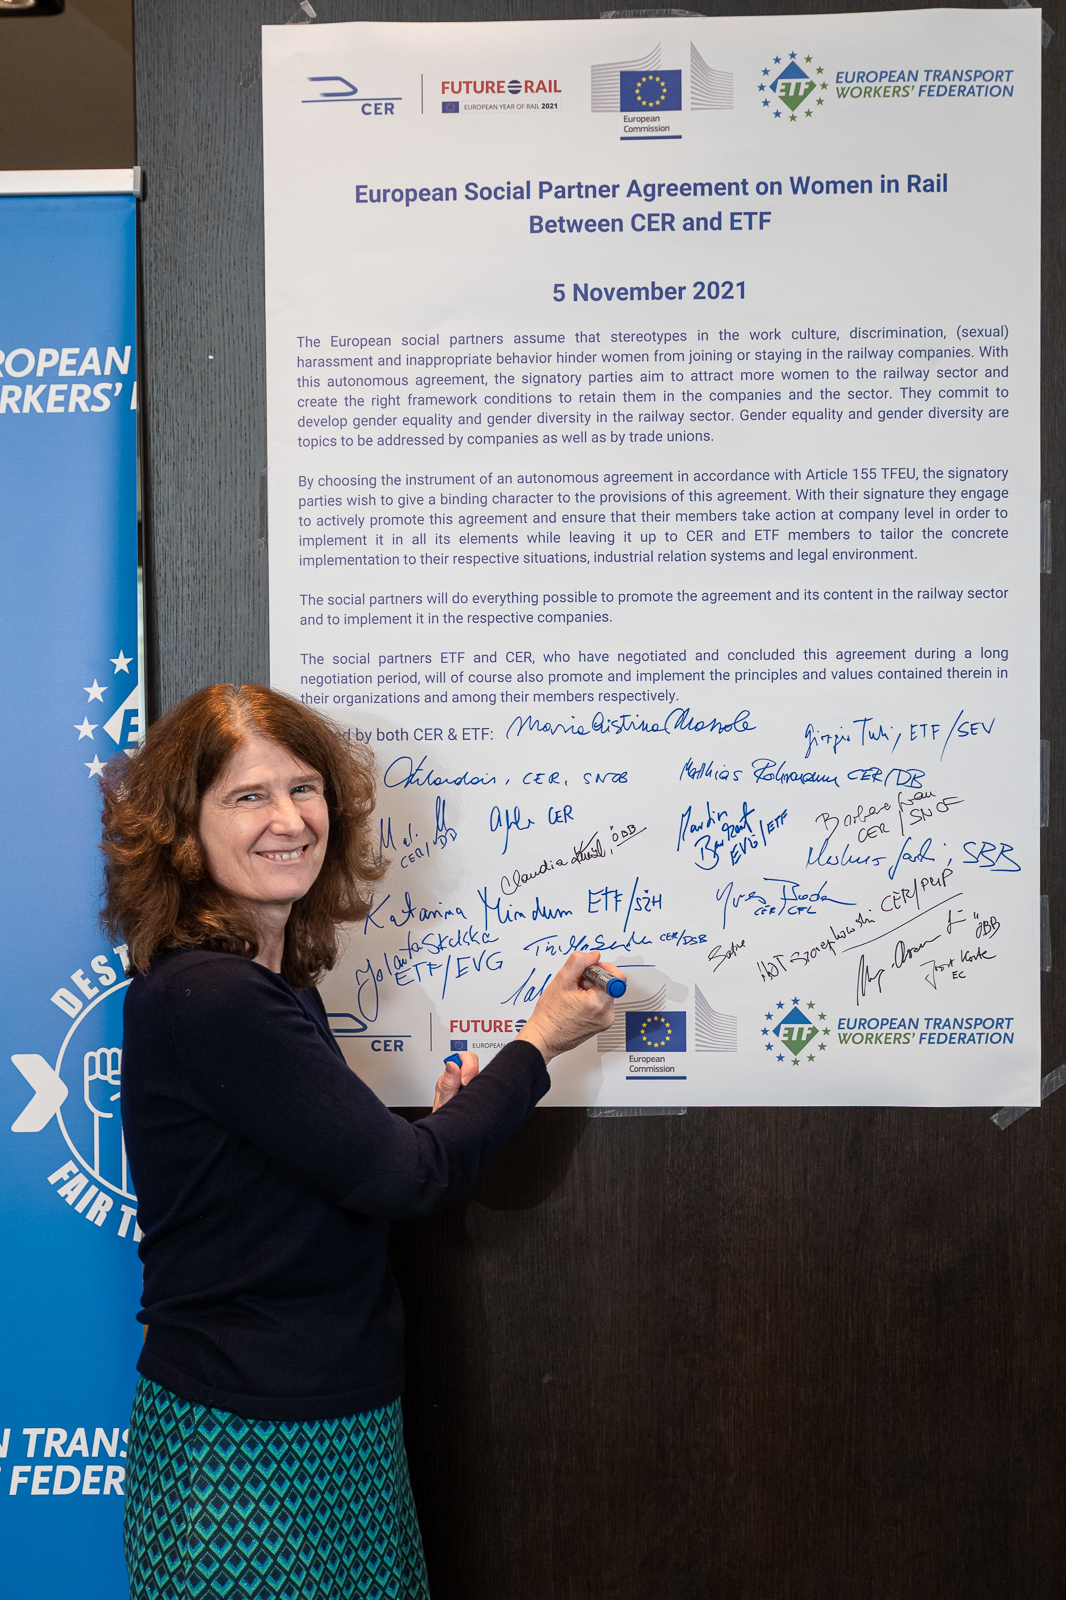 CER
FUTURE RAIL
EUROPEAN YEAR OF RAIL 2021
European
Commission
ETF
EUROPEAN TRANSPORT
WORKERS' FEDERATION
European Social Partner Agreement on Women in Rail
Between CER and ETF
5 November 2021
The European social partners assume that stereotypes in the work culture, discrimination, (sexual)
harassment and inappropriate behavior hinder women from joining or staying in the railway companies. With
this autonomous agreement, the signatory parties aim to attract more women to the railway sector and
create the right framework conditions to retain them in the companies and the sector. They commit to
develop gender equality and gender diversity in the railway sector. Gender equality and gender diversity are
topics to be addressed by companies as well as by trade unions.
By choosing the instrument of an autonomous agreement in accordance with Article 155 TFEU, the signatory
parties wish to give a binding character to the provisions of this agreement. With their signature they engage
to actively promote this agreement and ensure that their members take action at company level in order to
implement it in all its elements while leaving it up to CER and ETF members to tailor the concrete
implementation to their respective situations, industrial relation systems and legal environment.
The social partners will do everything possible to promote the agreement and its content in the railway sector
and to implement it in the respective companies.
The social partners ETF and CER, who have negotiated and concluded this agreement during a long
negotiation period, will of course also promote and implement the principles and values contained therein in
their organizations and among their members respectively.
by both CER & ETF:
ETF/SEV
CER, SNCB
Matthias CER/DB
CER/DB
CER
Martin
EVG/ETF
Barbara
CER/SNCF
Claudia ÖBB
SBB
Katarina ETF/SŽH
Yves
CER/CFL
CER/PKP
Jolanta Skalska
ETF/EVG
CER/DSB
ÖBB
EC
CER
FUTURE
EUROPEAN
European
Commission
ETF
EUROPEAN TRANSPORT
WORKERS' FEDERATION
ROPEAN
RKERS'
DEST
FAIR T
N TRANS
FEDER